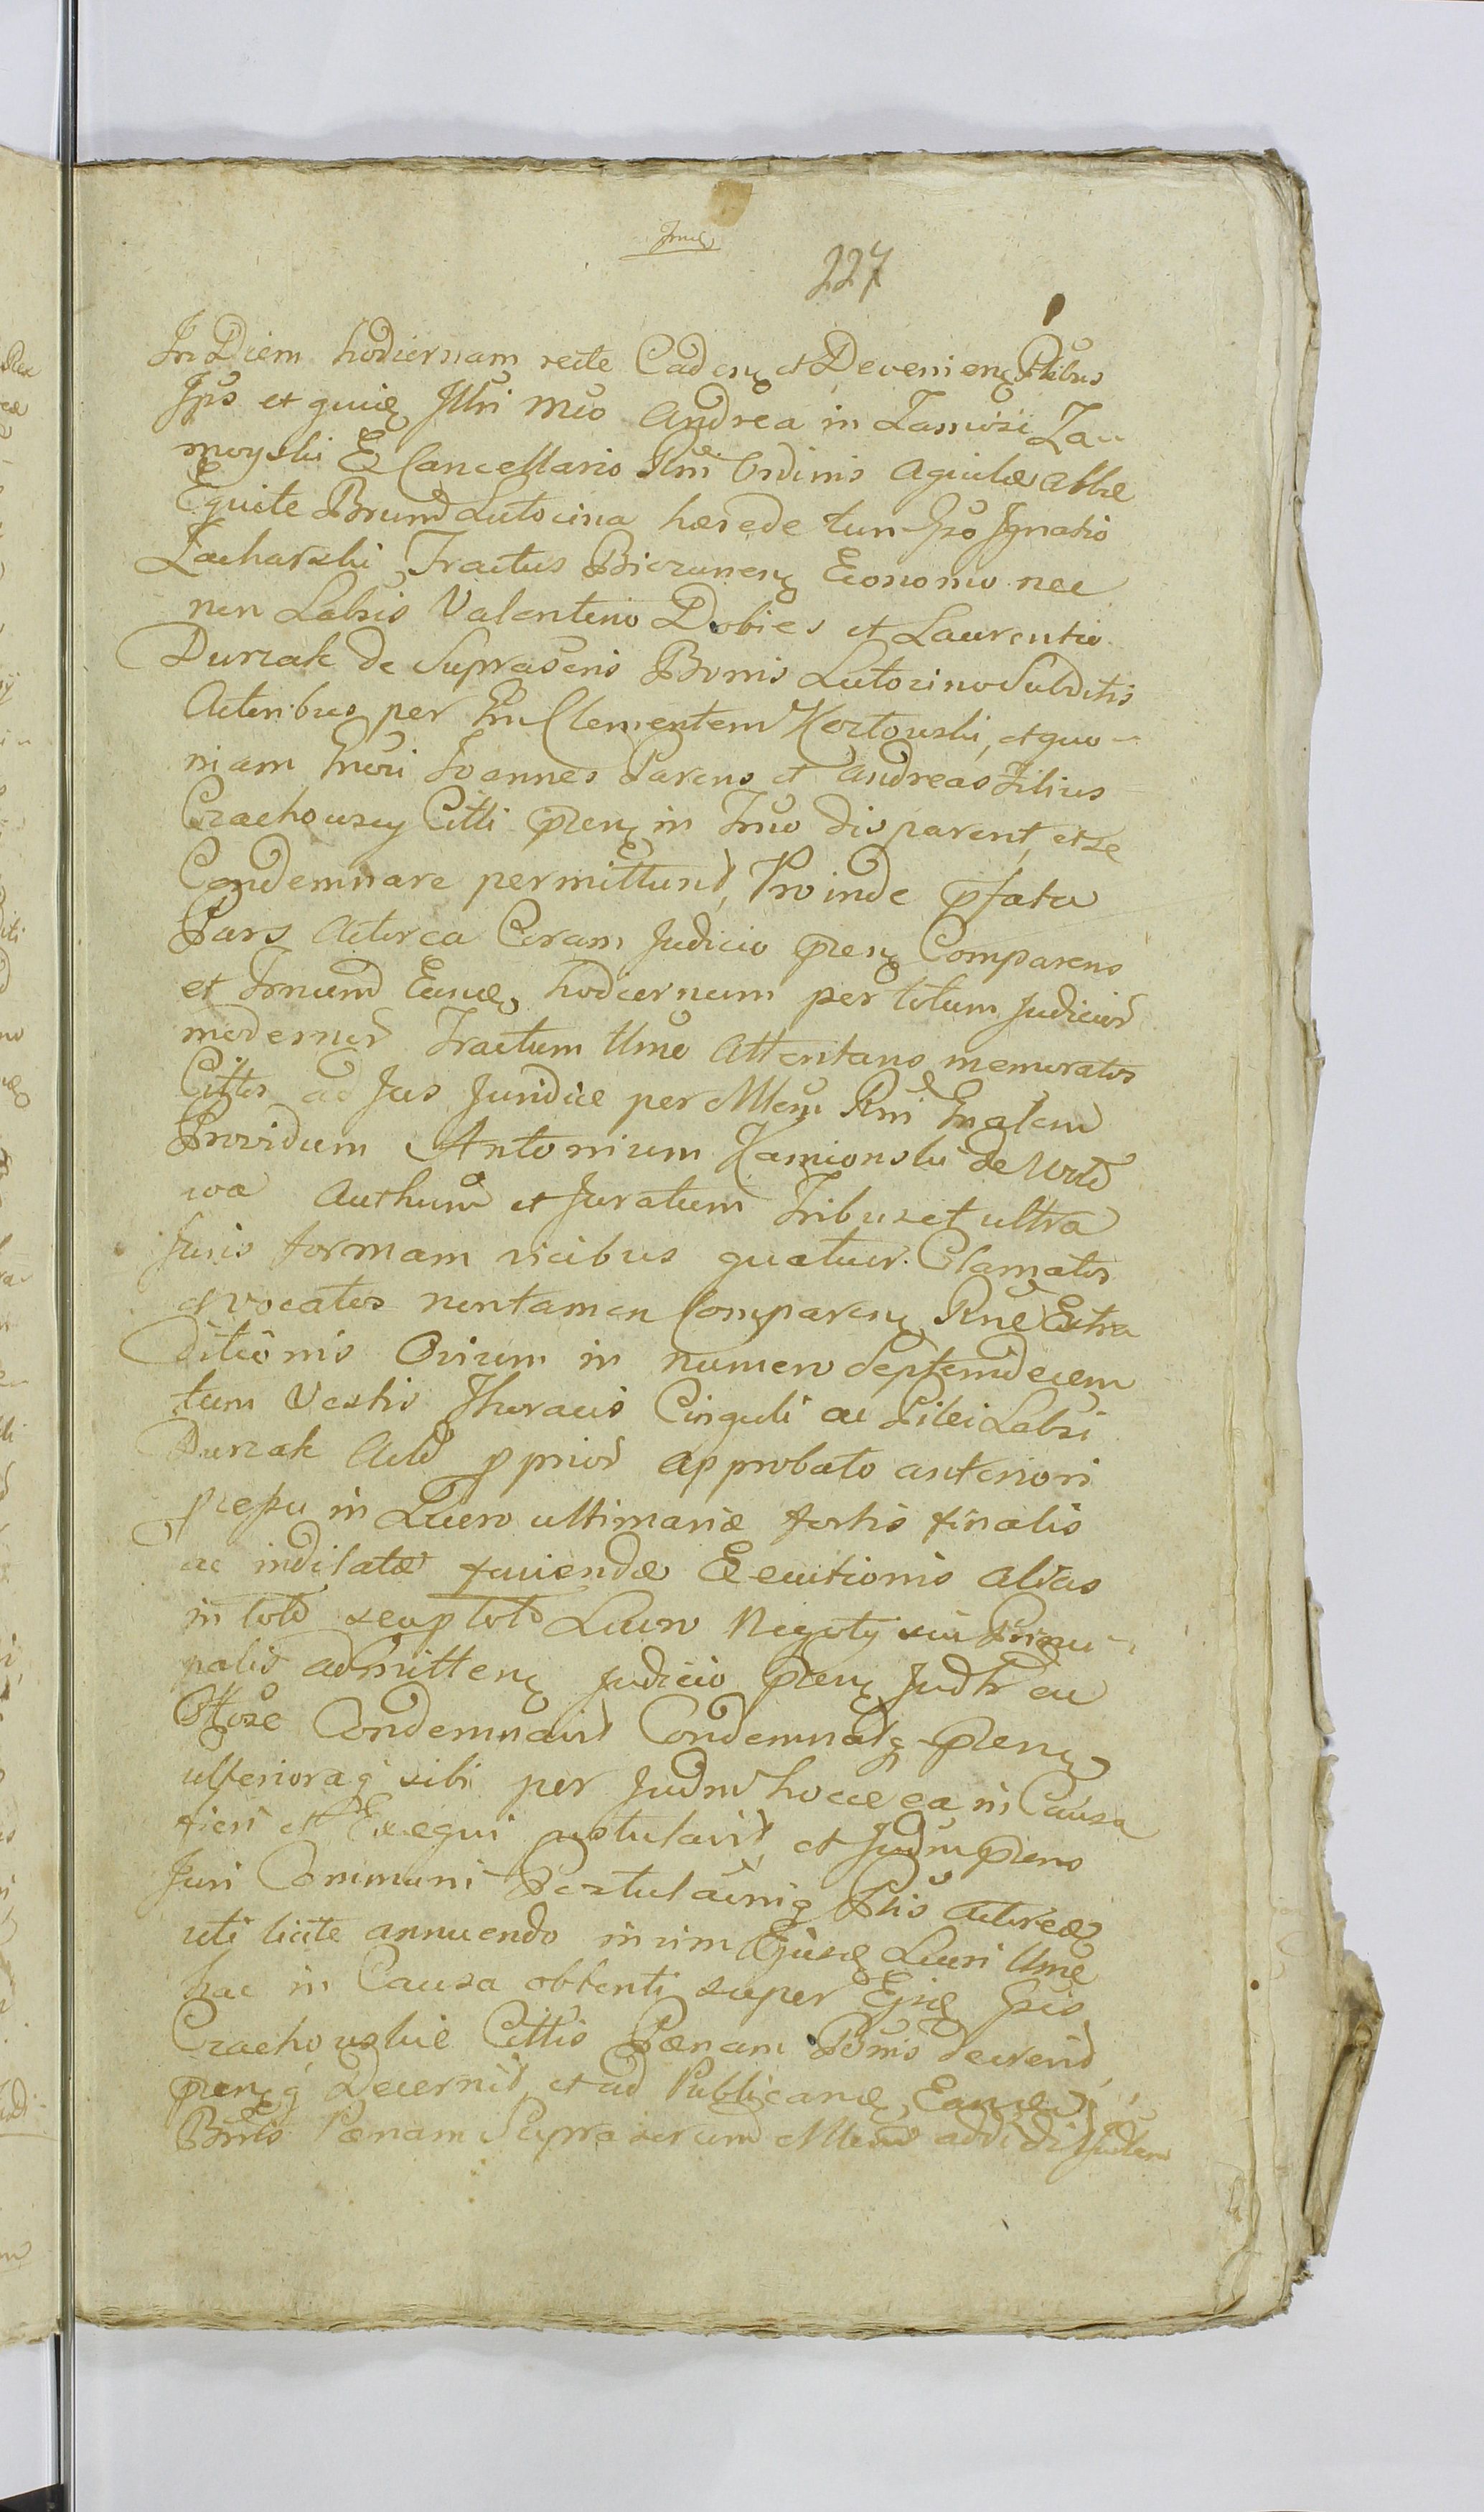 227
In Diem hodiernam recte Caden et Devenien Ptibus
Ipso et quide Illri Mco Andrea in Zamość Za-
moyski Ex Cancellario Ordinis Aquilæ Albæ
Equite Bonorũ Lutocina hærede tum Gso Ignatio
Zacharski Tractus Biezunen Economo nec
non Labsis Valentino Dobies et Laurentio
Durzak de Suprascris Bonis Lutocino Subditis
Actoribus per Clementem Kozłowski, et quo-
niam Gnosi Joannes Parens et Andreas Filius
Czachowscy Citti pñen in Tno disparent, et se
Condemnare permittunt, Proinde pfata
Pars Actorea Coram Judicio pñen Comparens
et Tnum Causæ hodiernum per totum Judicior
modernor Tractum Ulmo Attentans memoratos
Cittos ad Jus Juridice per Mlem Rni Gnalem
Providum Antonium Kamionski de
wa Authum et Juratum Tribus et ultra
Juris formam vicibus quatuor Clamatos
et vocatos non tamen Comparen Rne Extra
ditionis Ovium in numero Septemdecem
tum Vestis Thoracis Cinguli ac Pilei Labsi
Durzak Acto p prius approbato anteriori
pcessu in Lucro ultimariæ fortis finalis
ac indilatæ faciendæ Executionis alias
in toto seu p toto Lucro Negoty sui Princi-
palis admitten Judicio pñen Judtr eu
Ottose Condemnavit Condemnatq pñen
ulterioraq sibi per Judm hocce ea in Causa
fieri et Exequi postulavit, et Judm pñens
Juri Communi Postulaõniq Ptis Actoreæ
uti licite annuendo in vim Ejusd Lucri Ulme
hac in Causa obtenti super Ejusd Gsis
Czachowskie Cittis Pænam Bnnis decrevit
pñenq Decernit, et ad Publicand Eand
Bnnis Pænam Suprascrum Mlem addidit Judlem